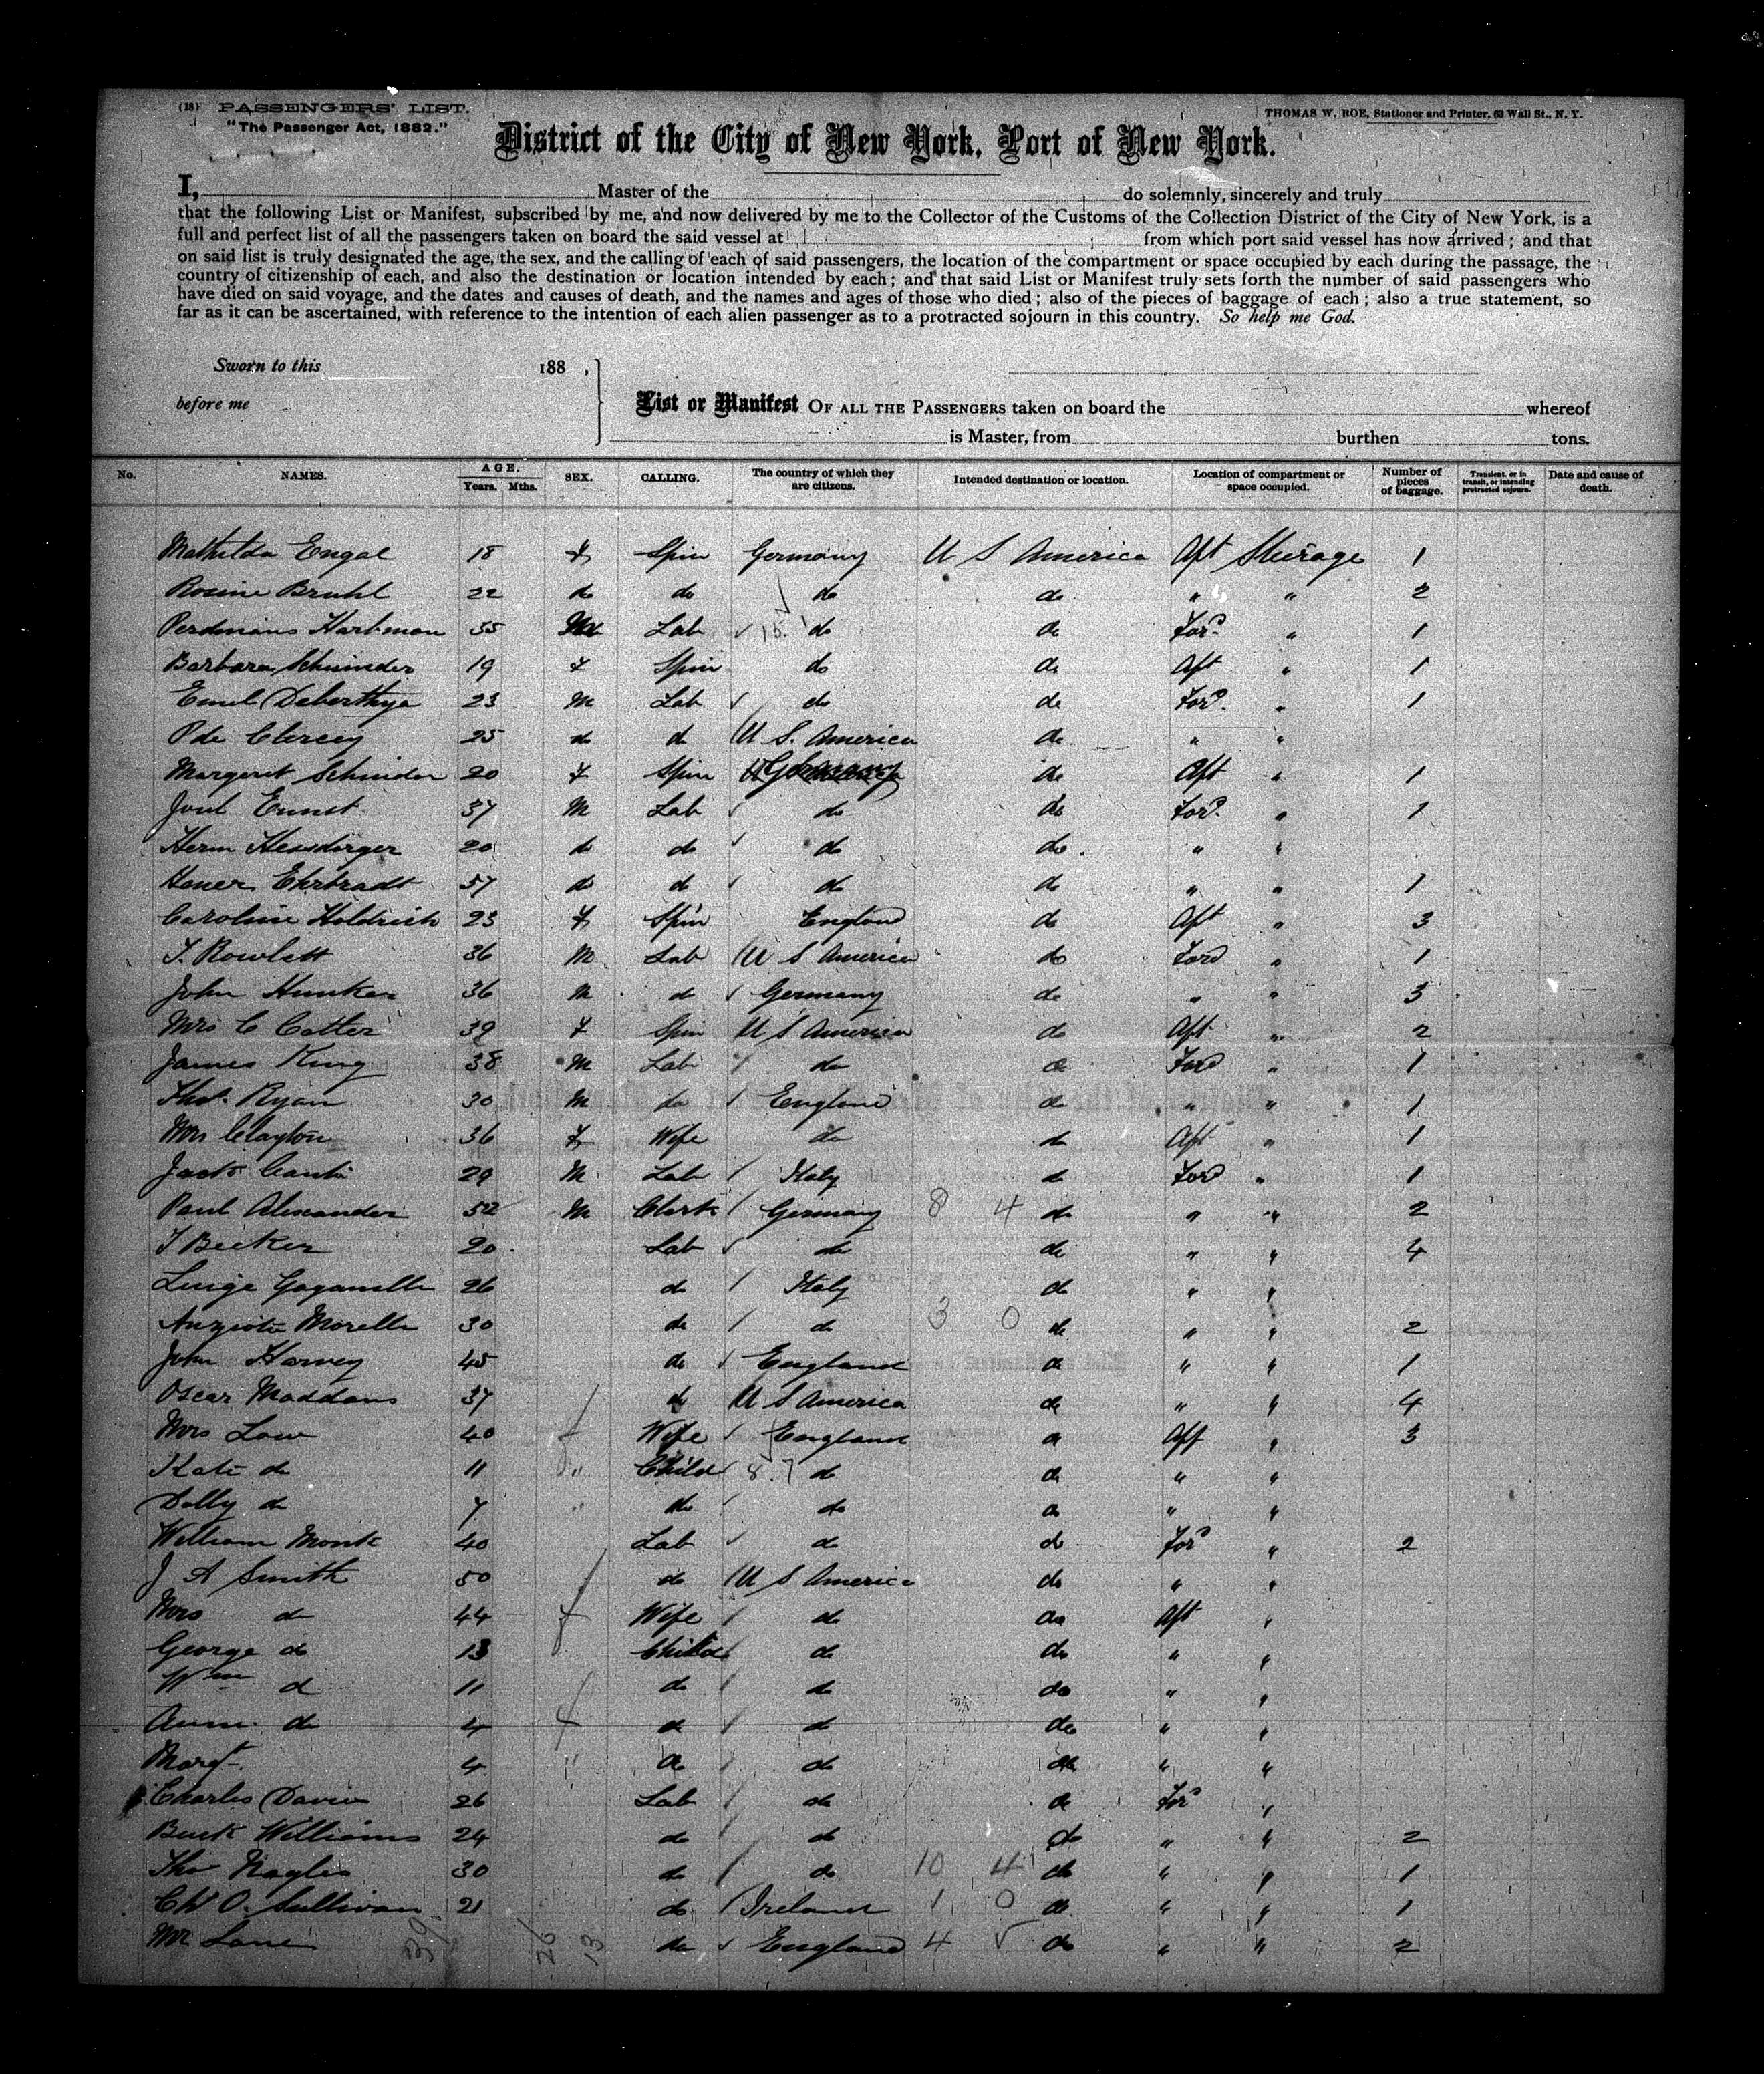 (18) PASSENGERS' LIST.
"The Passenger Act, 1882."
THOMAS W. ROE, Stationer and Printer, 63 Wall St., N. Y.
District of the City of New York, Port of New York.
I, Master of the do solemnly, sincerely and truly
that the following List or Manifest, subscribed by me, and now delivered by me to the Collector of the Customs of the Collection District of the City of New York, is a
full and perfect list of all the passengers taken on board the said vessel at from which port said vessel has now arrived; and that
on said list is truly designated the age, the sex, and the calling of each of said passengers, the location of the compartment or space occupied by each during the passage, the
country of citizenship of each, and also the destination or location intended by each; and that said List or Manifest truly sets forth the number of said passengers who
have died on said voyage, and the dates and causes of death, and the names and ages of those who died; also of the pieces of baggage of each; also a true statement, so
far as it can be ascertained, with reference to the intention of each alien passenger as to a protracted sojourn in this country. So help me God.
Sworn to this 188 ,
before me
List or Manifest OF ALL THE PASSENGERS taken on board the whereof
is Master, from burthen tons.
No. NAMES. AGE. Years. Mths. SEX. CALLING. The country of which they are citizens. Intended destination or location. Location of compartment or space occupied. Number of pieces of baggage. Transient, or in transit, or intending protracted sojourn. Date and cause of death.
Mathilda Engal 18 f Spin Germany U S America Aft Steirage 1
Rosine Bruhl 22 do do do do " " 2
Hartman 35 M Lab do do For'd " 1
Barbara Schninder 19 f Spin do do Aft " 1
Emil 23 M Lab do do For'd " 1
P de Clercey 25 do do U S. America do " "
Margerit Schnider 20 f Spin Germany do Aft " 1
Ernst 37 M Lab do do For'd " 1
Herm Hessdirger 20 do do do do " "
Ehrbradt 57 do do do do " " 1
Caroline Holdrich 23 f Spin England do Aft " 3
T. Rowlett 36 M Lab U S America do Ford " 1
John Hunker 36 M do Germany do " " 3
Mrs C Cotter 39 f Spin U S America do Aft " 2
James King 38 M Lab do do Ford " 1
Thos. Ryan 30 M do England do " " 1
Mrs Clayton 36 f Wife do do Aft " 1
29 M Lab Italy do Ford " 1
Paul Alexander 52 M Clerk Germany 8 4 do " " 2
T Becker 20 Lab do do " " 4
Luige 26 do Italy do " "
Morelle 30 do do 3 0 do " " 2
John Harvey 45 do England do " " 1
Oscar Maddans 37 do U S America do " " 4
Mrs Law 40 f Wife England do Aft " 3
Kate do 11 " Child 8.7 do do " "
Dolly do 7 " do do do " "
William Monk 40 Lab do do For'd " 2
J A Smith 50 do U S America do " "
Mrs do 44 f Wife do do Aft "
George do 13 Child do do " "
Wm do 11 do do do " "
Ann. do 4 f do do do " "
Margt. 4 " do do do " "
Charles Davies 26 Lab do do For'd "
Buck Williams 24 do do do " " 2
Tho Nagles 30 do do 10 4 do " " 1
O. Sullivan 21 do Ireland 1 0 do " " 1
Mr Lane do England 4 do " " 2
39 26 13